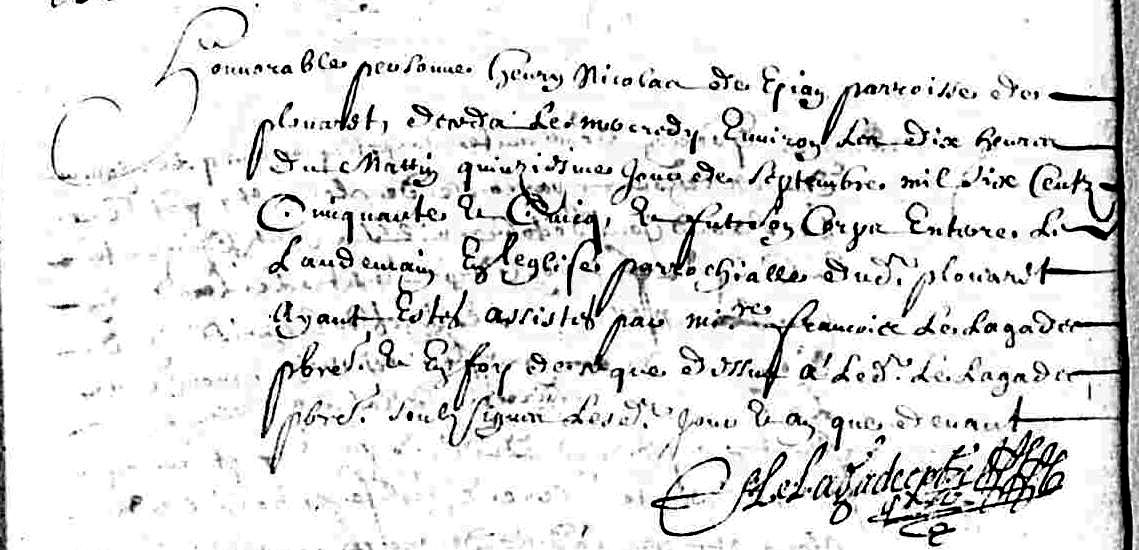 Honnorable personne Henry Nicolas de parroisse de
plouaret, deceda le mecredy Environ les dix heures
du Mattin quinziesme Jour de Septembre mil Six Centz
Cinquante et Cincq, et fut son Corps Enterre Le
Landemain En leglise parrochialle dud. plouaret
Ayant Esté assisté par missre francois Le Lagadec
pbre. et En foy de ce que dessus a Led. Le Lagadec
pbre. soubsigné Lesd. Jour et an que devant
f Le Lagadec pbre